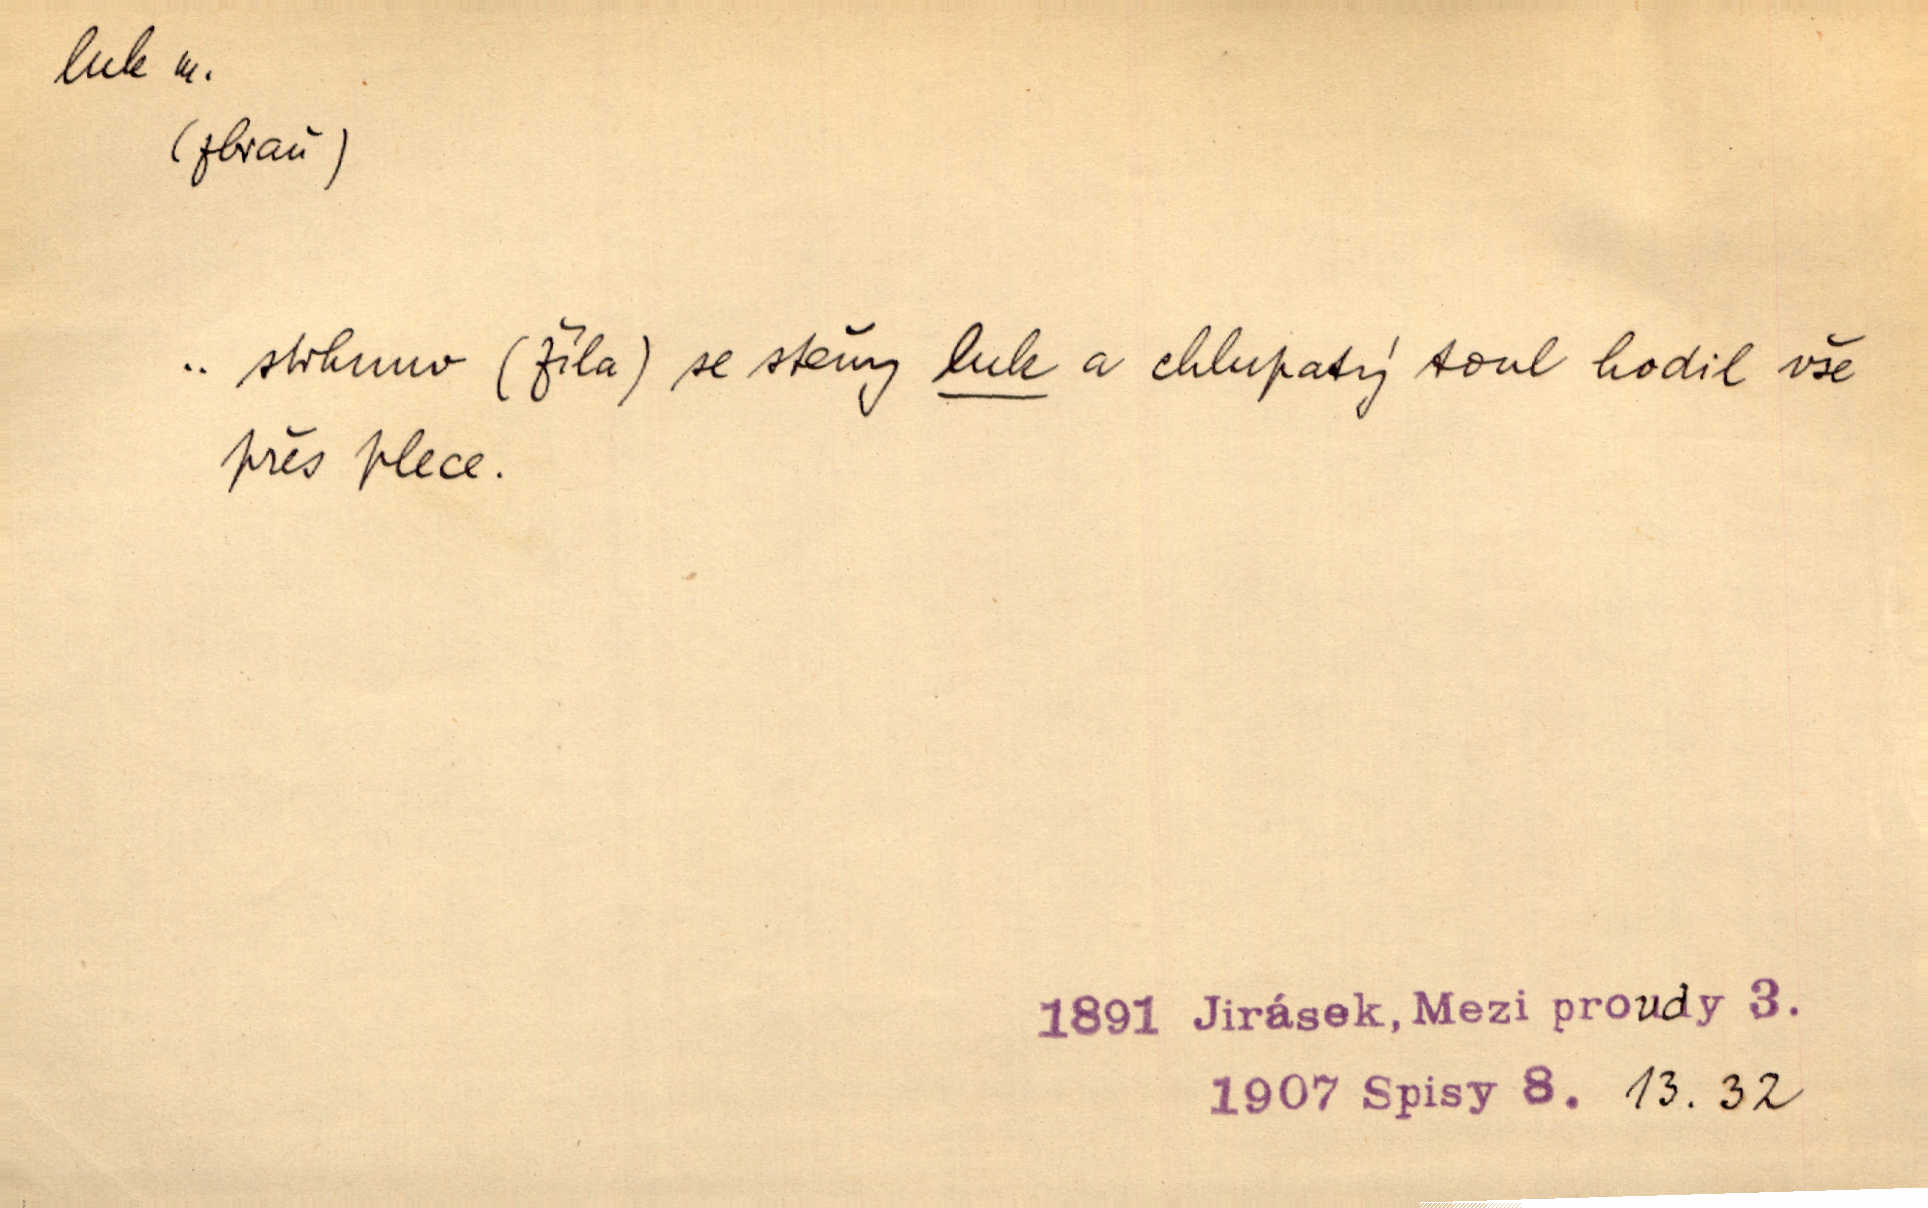 luk m.
(zbraň)
.. strhnuv (Žíla) se stěny luk a chlupatý toul hodil vše
přes plece.
1891 Jirásek, Mezi proudy 3.
1907 Spisy 8. 13. 32